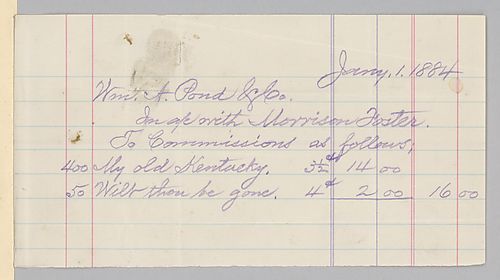 Jany. 1. 1884
Wm. A. Pond & Co.
In a/c with Morrison Foster.
To Commissions as follows,
400 My old Kentucky. 3½¢ 14 00
50 Wilt thou be gone. 4¢ 2 00 16 00